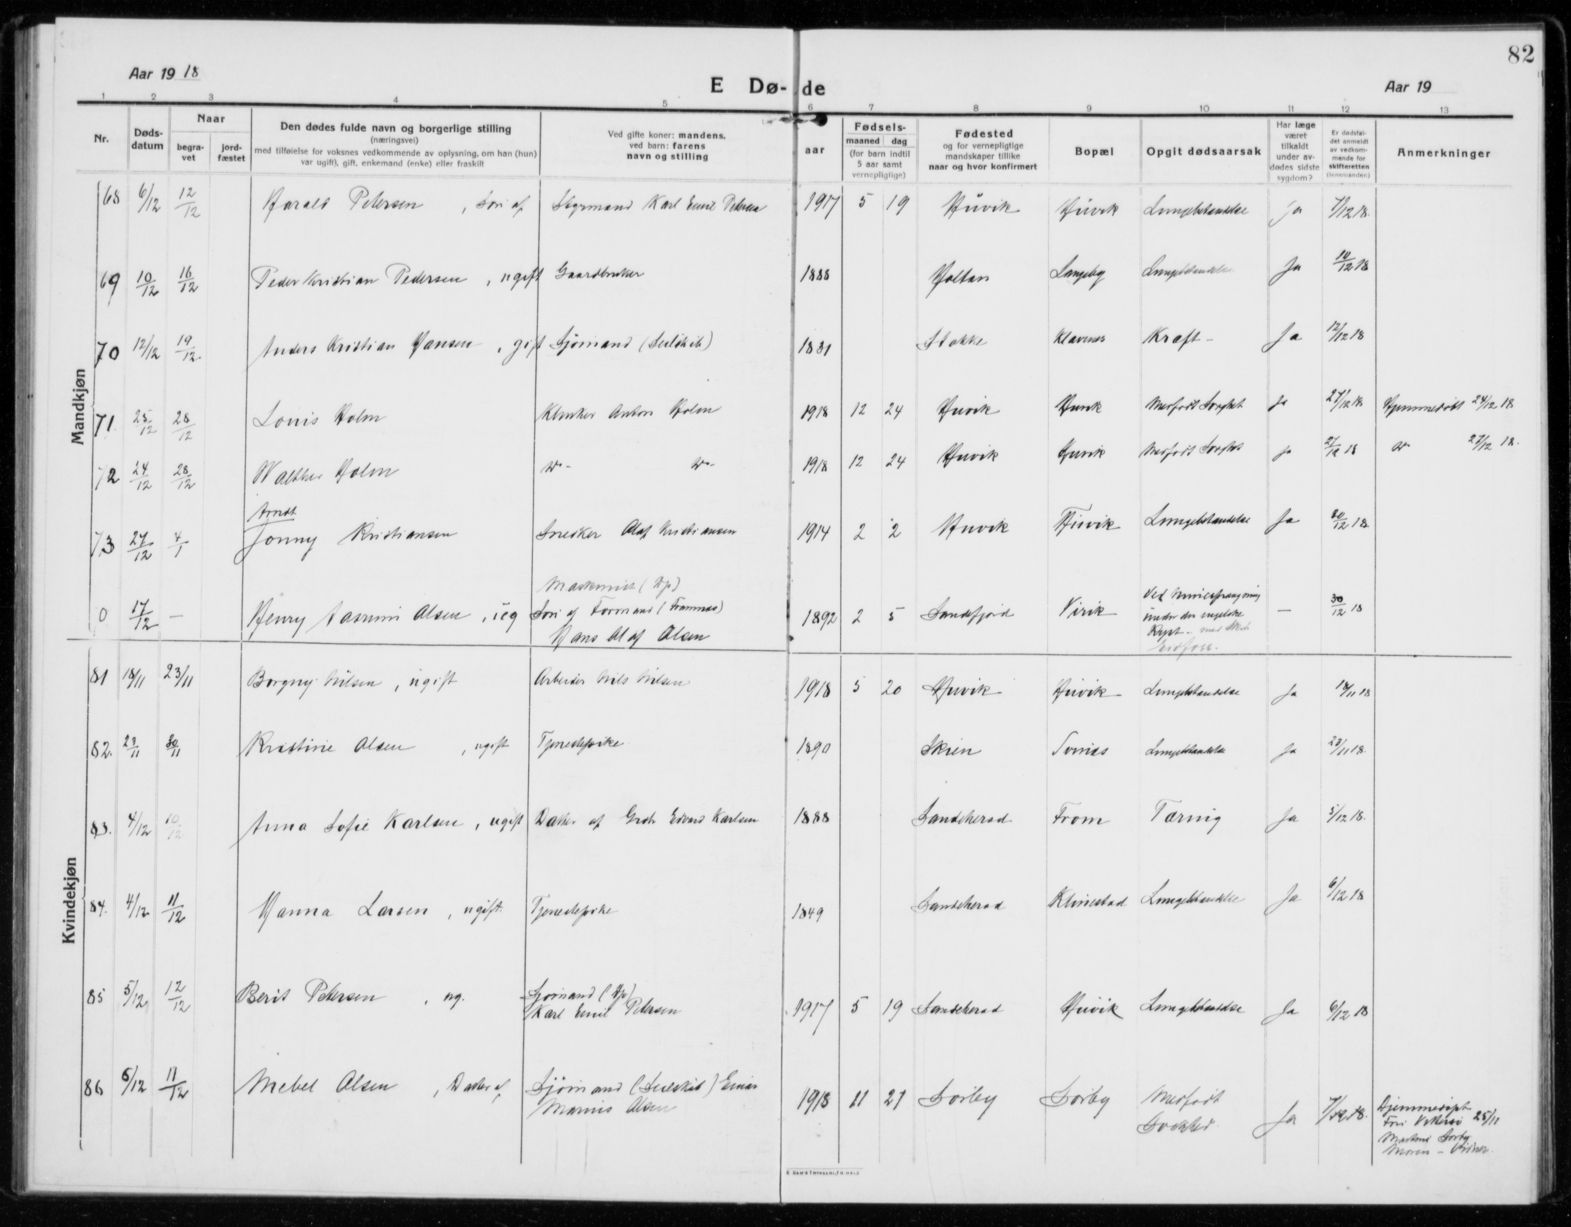 82
Aar 1918
E Dø- de
Aar 19
1 2 3 4 5 6 7 8 9 10 11 12 13
Nr.
Døds-
datum
Naar
begra-
vet
jord-
fæstet
Den dødes fulde navn og borgerlige stilling
(næringsvei)
med tilføielse for voksnes vedkommende av oplysning, om han (hun)
var ugift, gift, enkemand (enke) eller fraskilt
Ved gifte koner: mandens,
ved barn: farens
navn og stilling
aar
Fødsels-
maaned dag
(for barn indtil
5 aar samt
vernepligtige)
Fødested
og for vernepligtige
mandskaper tillike
naar og hvor konfirmert
Bopæl
Opgit dødsaarsak
Har læge
været
tilkaldt
under av-
dødes sidste
sygdom?
Er dødsfal-
det anmeldt
av vedkom-
mende for
skifteretten
(lensmanden)
Anmerkninger
Mandkjøn
68 6/12 12/12 Harald Petersen, Søn af Styrmand Karl Emil Petersen 1917 5 19 Huvik Huvik Lungebetændelse Ja 7/12 18
69 10/12 16/12 Peder Kristian Pedersen, ugift Gaardbruker 1888 Holtan Langeby Lungebetændelse Ja 10/12 18
70 12/12 19/12 Anders Kristian Hansen, gift Sjømand (Seilskib) 1881 Stokke Klavenes Kræft Ja 12/12 18
71 25/12 28/12 Louis Holm Klinker Anton Holm 1918 12 24 Huvik Huvik Medfødt Ja 27/12 18 Hjemmedøbt 24/12 18
72 24/12 28/12 Walther Holm 1918 12 24 Huvik Huvik Medfødt Ja 27/12 18 27/12 18
Arndt
73 27/12 4/1 Jonny Kristiansen Snedker Olaf Kristiansen 1914 2 2 Huvik Huvik Lungebetændelse Ja 30/12 18
Maskinist (Hp)
0 17/12 — Henry Olsen, ug Søn af Formand (Framnæs) 1892 2 5 Sandefjord Virik Ved Minesprængning — 30/12 18
Hans Olaf Olsen
under den engelske
Kyst
Kvindekjøn
81 18/11 23/11 Borgny Nilsen, ugift Arbeider Nils Nilsen 1918 5 20 Huvik Huvik Lungebetændelse Ja 18/11 18
82. 23/11 30/11 Kristine Olsen, ugift Tjenestepike 1890 Skien Lungebetændelse Ja 23/11 18
83. 4/12 10/12 Anna Sofie Karlsen, ugift Datter af Edvard Karlsen 1888 Sandeherad From Tæring Ja 5/12 18.
84. 4/12 11/12 Hanna Larsen, ugift. Tjenestepike 1849 Sandeherad Klinestad Lungebetændelse Ja 6/12 18
85 5/12 12/12 Berit Petersen, ug. Sjømand (Hp) 1917 5 19 Sandeherad Huvik Lungebetændelse Ja 6/12 18
Karl Emil Petersen
86 5/12 11/12 Mebel Olsen, Datter af Sjømand (Seilskib) Einar 1918 11 21 Sørby Sørby Medfødt Ja 7/12 18. Hjemmedøpt 25/11
Marius Olsen